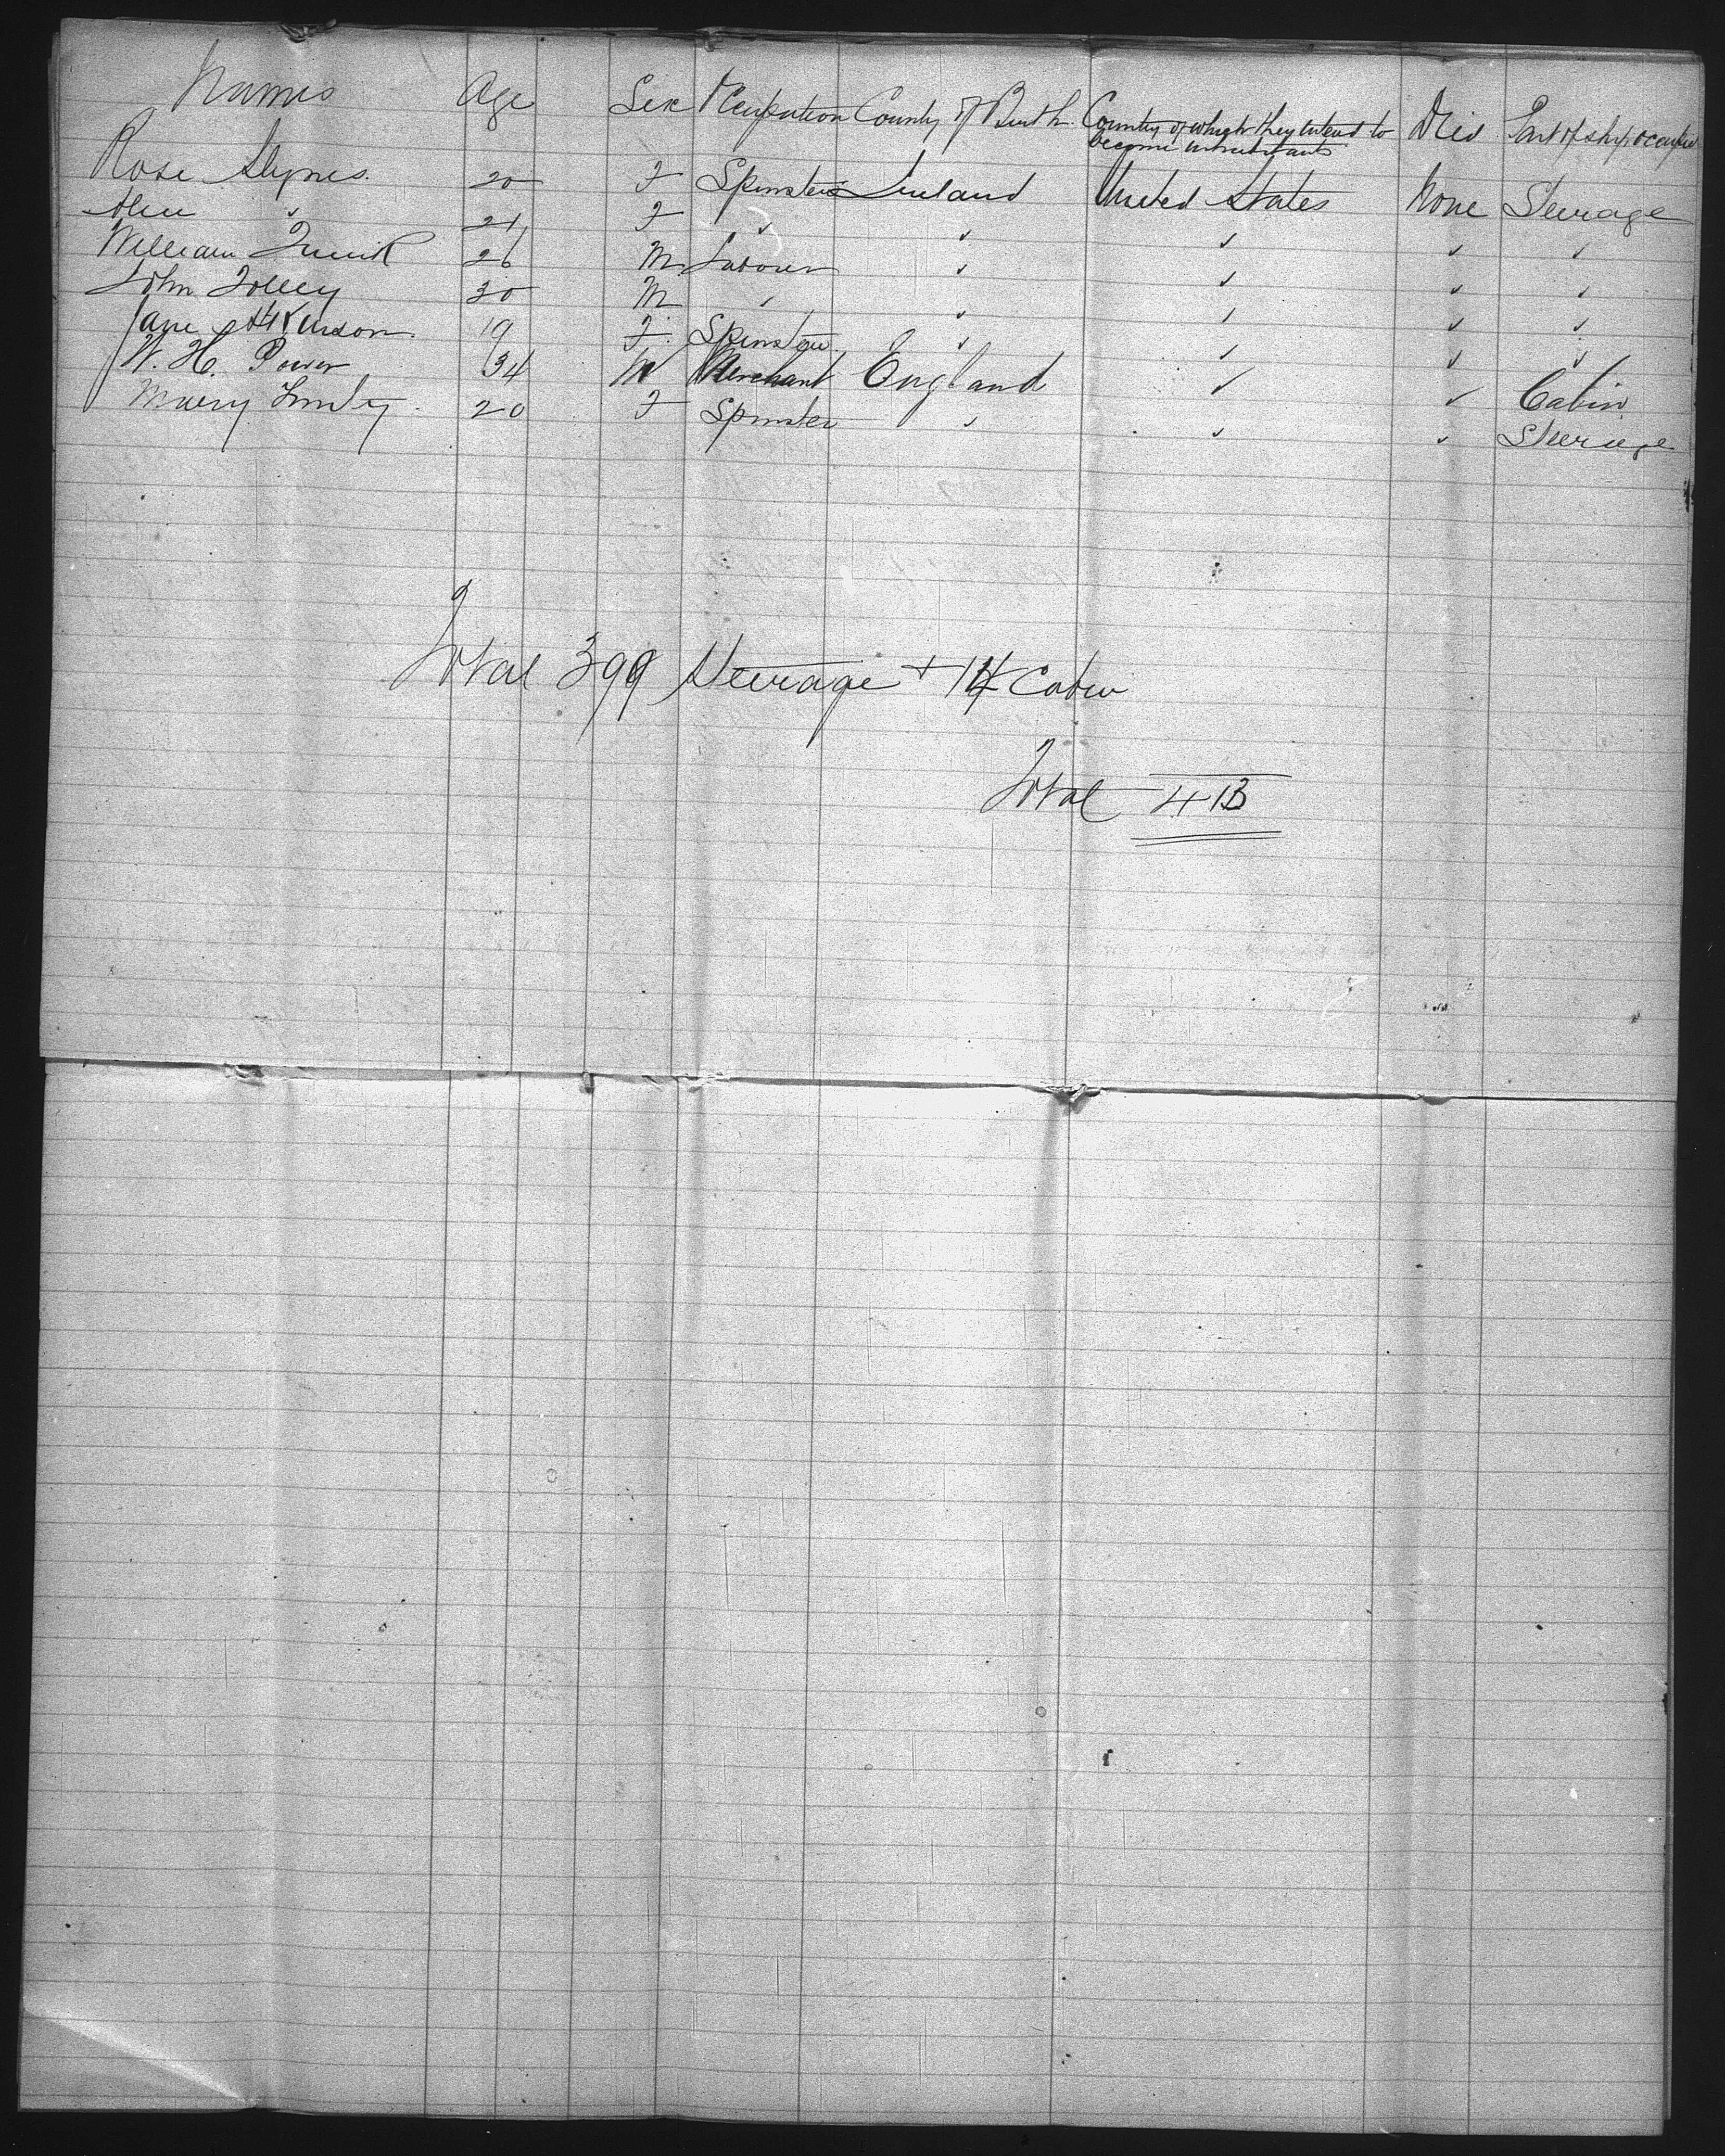 Names Age Sex Occupation County of Birth Country of which they intend to become inhabitants Died Part of ship occupied
Rose 20 F Spinster Ireland United States None Steerage
" 21 F " " " " "
William Quirk 26 M Labourer " " " "
John Folley 30 M " " " " "
Jane Atkinson 19 F Spinster " " " "
W. H. Power 34 M Merchant England " " Cabin
Mary 20 F Spinster " " " Steerage
Total 399 Steerage + 14 Cabin
Total 413